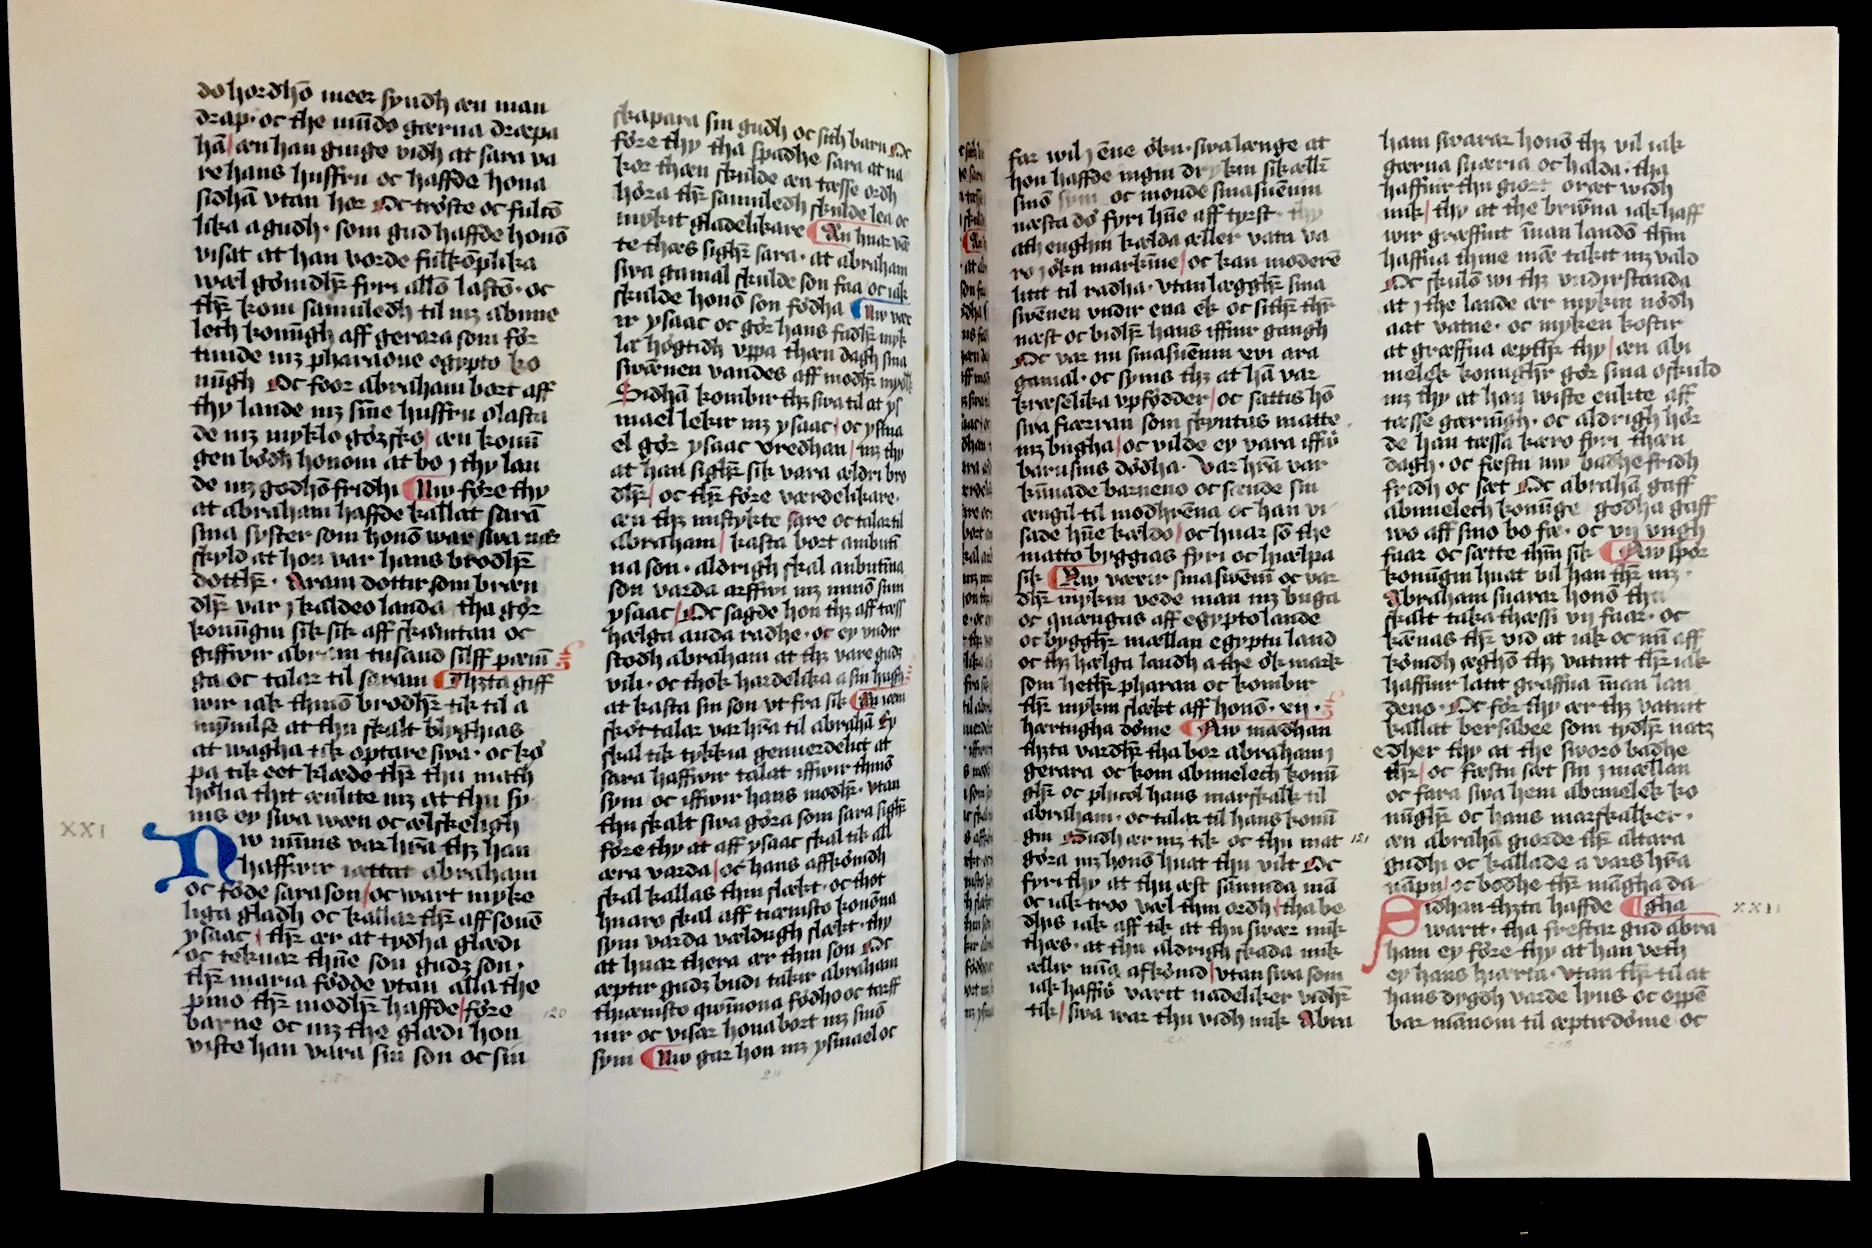 do hordhō meer syndh æn man
drap · oc the mūdo gærna dræpa
hā / æn han ginge vidh at sara va
re hans husfru oc haffde hona
sidhā vtan hor Oc trøste oc fultō
lika a gudh · som gud haffde honō
visat at han vorde fulkoplika
wæl gømdhr̄ fyri allō lastō · oc
thr̄ kom samuledh til mz abime
lech konūgh aff gerara som før
tinde mz pharaone egypto ko
nūgh Oc foor abraham bort aff
thy lande mz sine husfru olasta
de mz myklo gozsko / æn konū
gen bødh honom at bo j thy lan
de mz godhō fridhi Nw fore thy
at abraham haffde kallat sarā
sina syster som honō war swa nær
skyld at hon var hans brodhr̄
dotthr̄ · Aram dottir som bræn
dhr̄ var j kaldeo landa tha gør
konūgin sik sik aff skæmtan oc
giffwir abraam tusand silff pæni̅
ga oc talar til saram Thzta giff
wir iak thinō brodhr̄ tik til a
mȳnilse at thu skalt blyghias
at wagha tik optare swa · oc kø
pa tik eet klæde thr̄ thu math
hølia thit ænlite mz at thu sy
nis ey swa wæn oc ælskeligh
XXI
Nw mi̅nis var hr̄a thz han
haffwir iættat abraham
oc føde sara son / oc wart myke
liga gladh oc kallar thr̄ aff sonē
ysaac / thr̄ ær at tydha glædi
oc teknar thn̄e son gudz son ·
thr̄ maria fødde vtan alla the
pino thr̄ modhr̄ haffde / føre
barne oc mz the glædi hon
viste han vara sin son oc sin
120
skapara sin gudh oc sith barn Oc
føre thy tha spadhe sara at na
kor thæn skulde æn tæsse ordh
høra thr̄ samuledh skulde lea oc
mykit gladelikare An huar vn̄
te thæs sighr̄ sara · at abraham
swa gamal skulde son faa oc iak
skulde honō son fødha Nw vær
ir ysaac oc gør hans fadhr̄ myk
la høgtidh vppa thæn dagh sina
swænen vandes aff modhr̄
Sidhā kombir thz swa til at ys
mael lekir mz ysaac / oc ysma
el gør ysaac vredhan / mz thy
at han sighr̄ sik vara ældri bro
dhr̄ / oc thr̄ føre værdelikare ·
æn thz mistykte sare oc talar til
abraham / kasta bort ambuti̅
na son · aldrigh skal ambutina
son varda arffwi mz minō sun
ysaac / Oc sagde hon thz aff tæss
hælga anda radhe · oc ey vndir
stodh abraham at thz vare gudz
vili · oc thok hardelika a sin hugh
at kasta sin son vt fra sik
skøt talar var hr̄a til abrahā Ey
skal tik tykkia genuerdelict at
sara haffwir talat iffwir thinō
sym oc iffwir hans modhr̄ · vtan
thu skalt swa gøra som sara sighr̄
føre thy at aff ysaac skal tik all
æra varda / oc hans affkømdh
skal kallas thin slækt · oc thot
huaro skal aff tiænisto konōna
sym varda vældugh slækt · thy
at huar thera ær thin son Oc
æptir gudz budi takir abraham
thiænisto qwi̅nona fødho oc tæff
nir oc visar hona bort mz sinō
sym Nw gar hon mz ysmael oc
far wil j ēne økn · swa længe at
hon haffde ingin drykin sikælfr̄
sinō sym oc monde smasuēnin
næsta dø fyri hn̄e aff tyrst · thy
ath enghin kælda æller vatn va
ro j økn markin̄e / oc kan moderē
litit til radha · vtan lægghr̄ sina
swēnen vndir ena ek oc sithr̄ thr̄
næst oc bidhr̄ hans iffiur gangh
Oc var nu smasuēnin xvi ara
gamal · oc syms thz at hā var
kræselika vpfødder / oc sattis hō
swa fiærran som skyntas matte
mz bugha / oc vilde ey vara iffiū
barnsins dødha · var hr̄a var
kūnade barneno oc sænde sin
ængil til modhrēna oc han vi
sade hn̄e kældo / oc huar sō the
matto byggias fyri oc hælpa
sik Nw væxir smaswēni̅ oc var
dhr̄ mykin vede man mz buga
oc quængas aff egypto lande
oc bygghr̄ mællan egyptu land
oc thz hælga landh a the ök mark
som hethr̄ pharan oc kombir
thr̄ mykin slækt aff honō · xij ·
hærtugha døme Nw mædhan
thzta vardhr̄ tha bor abraham j
gerara oc kom abimelech konū
ghr̄ oc phicol hans marskalk til
abraham · oc talar til hans konū
gin Gudh ær mz tik oc thu mat
gøra mz honō huat thu vilt Oc
fyri thy at thu æst sanninda mā
oc iak troo væl thin ordh / tha be
dhis iak aff tik at thu swær mik
thæs · at thu aldrigh skada mik
ællir mina afkømd / vtan swa som
iak haffū varit nadeliker vidhr̄
tik / swa war thu vidh mik Abra
121
ham swarar honō thz vil iak
gærna suæria oc halda · tha
haffiur thu giort oræt widh
mik / thy at the brwn̄a iak haff
wir græffuit i̅nan landō thm̄
haffua thine mæn takit mz vald
Oc skulō wi thz vndirstanda
at j the lande ær mykin nødh
aat vatne · oc myken kostir
at græffua æpthr̄ thy / æn abi
melek konughr̄ gør sina oskuld
mz thy at han wiste enkte aff
tæsse gærni̅gh · oc aldrigh hør
de han tæssa kæro fyri thæn
dagh · oc fæstu nw badhe fridh
fridh oc sæt Oc abrahā gaff
abimelech konūge godha gaff
wo aff sino bo fæ · oc vij vngh
fuar oc sætte thm̄ sik Nw spør
konūgin huat vil han thr̄ mz ·
Abraham suarar honō thu
skalt taka thæssi vij faar · oc
kænnas thr̄ vid at iak oc mi̅ aff
kømdh æghō thz vatnit thr̄ iak
haffiur latit graffua i̅nan lan
deno · Oc før thy ær thz vatnit
kallat bersabee som tydhr̄ natz
edher thy at the sworo badhe
thr̄ / oc fæstu sæt sin j mællan
oc fara swa hem abimelek ko
nūghr̄ oc hans marskalker ·
æn abrahā giorde thr̄ altara
gudhi oc kallade a vars hr̄a
nāpn / oc bodhe thr̄ māgha da
Sidhan thzta haffde gha
XXII
warit · tha frestar gud abra
ham ey føre thy at han veth
ey hans hiærta · vtan thr̄ til at
hans dygdh varde lyus oc oppē
bar mānom til æptirdøme oc